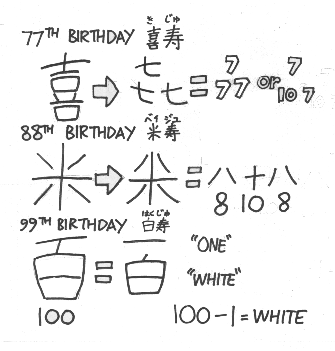 き じゅ
77TH BIRTHDAY 喜寿
喜 七 七七 = 7 77 or 7 10 7
ベイ ジュ
88TH BIRTHDAY 米寿
米 米 = 八 十 八
8 10 8
はくじゅ
99TH BIRTHDAY 白寿
百 = 一 白 "ONE"
"WHITE"
100 100-1 = WHITE